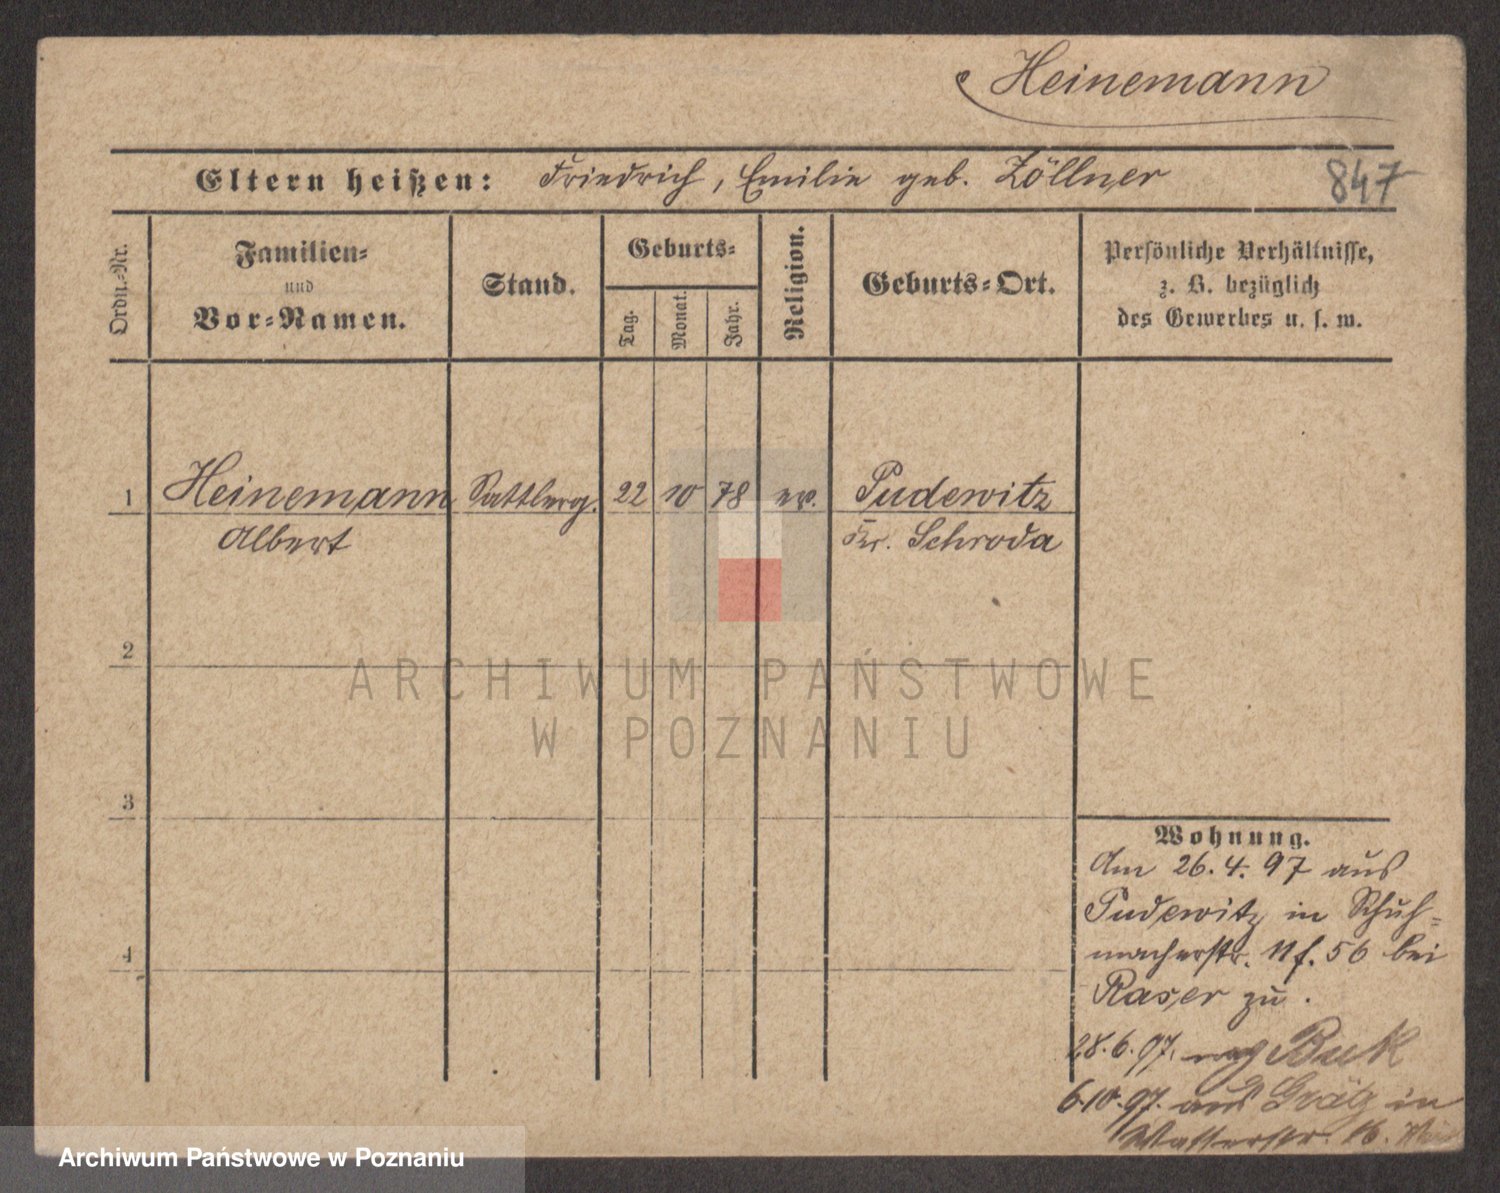 Heinemann
Eltern heißen: Friedrich, Emilie geb. Zöllner
847
Ordn.-Nr.
Familien-
und
Vor-Namen.
Stand.
Geburts-
Tag.
Monat.
Jahr.
Religion.
Geburts-Ort.
Persönliche Verhältnisse,
z. B. bezüglich
des Gewerbes u. s. w.
1 Heinemann Sattlerg. 22 10 78 ev. Pudewitz
Albert Kr. Schroda
2
3
4
Wohnung.
Am 26.4.97 aus
Pudewitz in Schuh-
macherstr. 11 f. 56 bei
Raser zu.
28.6.97. nach Buk
6.10.97. aus Grätz in
Wasserstr. 16.
ARCHIWUM PAŃSTWOWE
W POZNANIU
Archiwum Państwowe w Poznaniu